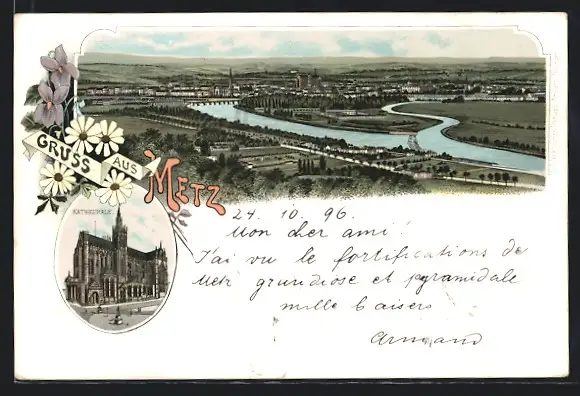 GRUSS AUS
METZ
KATHEDRALE
24. 10. 96.
Mon cher ami!
J'ai vu le fortifications de
Metz grundiose et pyramidale
mille baisers
Armand